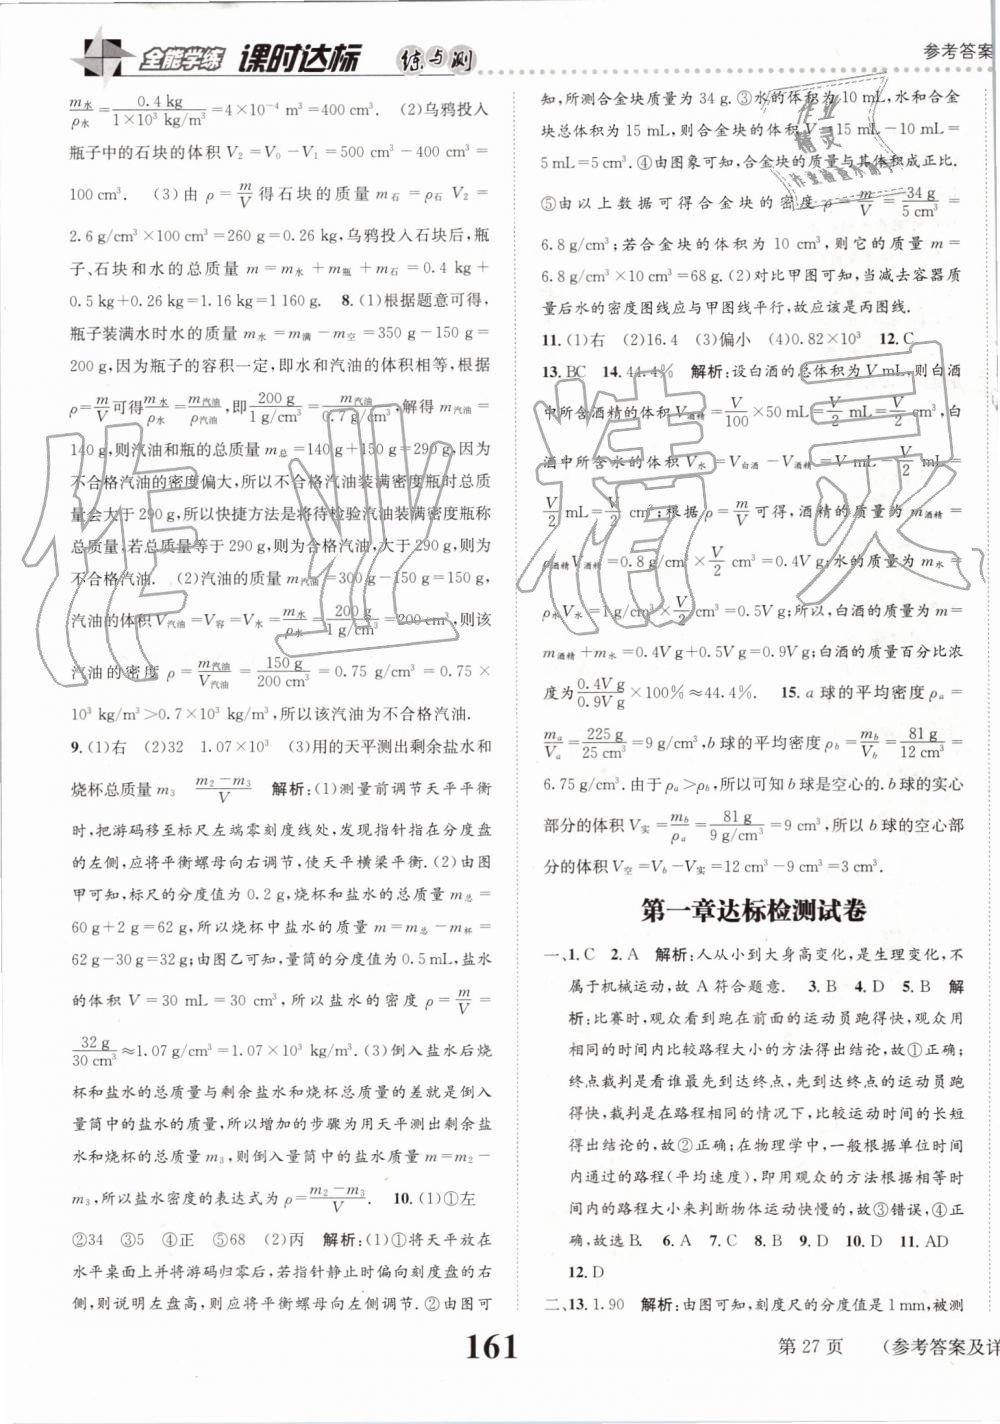 全能学练 课时达标 练与测
参考答案
m水/ρ水=0.4 kg/1×10³ kg/m³=4×10⁻⁴ m³=400 cm³. (2)乌鸦投入
瓶子中的石块的体积 V₂=V₀-V₁=500 cm³-400 cm³=
100 cm³. (3)由 ρ=m/V 得石块的质量 m石=ρ石 V₂=
2.6 g/cm³×100 cm³=260 g=0.26 kg,乌鸦投入石块后,瓶
子、石块和水的总质量 m=m水+m瓶+m石=0.4 kg+
0.5 kg+0.26 kg=1.16 kg=1 160 g. 8.(1)根据题意可得,
瓶子装满水时水的质量 m水=m满-m空=350 g-150 g=
200 g,因为瓶子的容积一定,即水和汽油的体积相等,根据
ρ=m/V可得m水/ρ水=m汽油/ρ汽油,即200 g/1 g/cm³=m汽油/0.7 g/cm³,解得 m汽油=
140 g,则汽油和瓶的总质量 m总=140 g+150 g=290 g,因为
不合格汽油的密度偏大,所以不合格汽油装满密度瓶时总质
量会大于 290 g,所以快捷方法是将待检验汽油装满密度瓶称
总质量,若总质量等于 290 g,则为合格汽油,大于 290 g,则为
不合格汽油. (2)汽油的质量 m汽油=300 g-150 g=150 g,
汽油的体积 V汽油=V容=V水=m水/ρ水=200 g/1 g/cm³=200 cm³,则该
汽油的密度 ρ=m汽油/V汽油=150 g/200 cm³=0.75 g/cm³=0.75×
10³ kg/m³>0.7×10³ kg/m³,所以该汽油为不合格汽油.
9.(1)右 (2)32 1.07×10³ (3)用的天平测出剩余盐水和
烧杯总质量 m₃ m₂-m₃/V 解析:(1)测量前调节天平平衡
时,把游码移至标尺左端零刻度线处,发现指针指在分度盘
的左侧,应将平衡螺母向右调节,使天平横梁平衡.(2)由图
甲可知,标尺的分度值为 0.2 g,烧杯和盐水的总质量 m总=
60 g+2 g=62 g,所以烧杯中盐水的质量 m=m总-m杯=
62 g-30 g=32 g;由图乙可知,量筒的分度值为 0.5 mL,盐水
的体积 V=30 mL=30 cm³,所以盐水的密度 ρ=m/V=
32 g/30 cm³≈1.07 g/cm³=1.07×10³ kg/m³.(3)倒入盐水后烧
杯和盐水的总质量与剩余盐水和烧杯总质量的差就是倒入
量筒中的盐水的质量,所以增加的步骤为用天平测出剩余盐
水和烧杯的总质量 m₃,则倒入量筒中的盐水质量 m=m₂-
m₃,所以盐水密度的表达式为 ρ=m₂-m₃/V. 10.(1)①左
②34 ③5 ④正 ⑤68 (2)丙 解析:(1)①将天平放在
水平桌面上并将游码归零后,若指针静止时偏向刻度盘的右
侧,则说明左盘高,则应将平衡螺母向左调节.②由图可
知,所测合金块质量为 34 g.③水的体积为 10 mL,水和合金
块总体积为 15 mL,则合金块的体积 V=15 mL-10 mL=
5 mL=5 cm³.④由图象可知,合金块的质量与其体积成正比.
⑤由以上数据可得合金块的密度 ρ=m/V=34 g/5 cm³=
6.8 g/cm³;若合金块的体积为 10 cm³,则它的质量 m=
6.8 g/cm³×10 cm³=68 g.(2)对比甲图可知,当减去容器质
量后水的密度图线应与甲图线平行,故应该是丙图线.
11.(1)右 (2)16.4 (3)偏小 (4)0.82×10³ 12.C
13.BC 14.44.4% 解析:设白酒的总体积为 V mL,则白酒
中所含酒精的体积 V酒精=V/100×50 mL=V/2 mL=V/2 cm³,白
酒中所含水的体积 V水=V白酒-V酒精=V mL-V/2 mL=
V/2 mL=V/2 cm³;根据 ρ=m/V可得,酒精的质量为 m酒精=
ρ酒精 V酒精=0.8 g/cm³×V/2 cm³=0.4V g;水的质量为 m水=
ρ水V水=1 g/cm³×V/2 cm³=0.5V g;所以,白酒的质量 m=
m酒精+m水=0.4V g+0.5V g=0.9V g;白酒的质量百分比浓
度为0.4V g/0.9V g×100%≈44.4%. 15.a 球的平均密度 ρa=
ma/Va=225 g/25 cm³=9 g/cm³,b球的平均密度 ρb=mb/Vb=81 g/12 cm³=
6.75 g/cm³.由于 ρa>ρb,所以可知 b 球是空心的.b球的实心
部分的体积 V实=mb/ρa=81 g/9 g/cm³=9 cm³,所以 b 球的空心部
分的体积 V空=Vb-V实=12 cm³-9 cm³=3 cm³.
第一章达标检测试卷
一、1.C 2.A 解析:人从小到大身高变化,是生理变化,不
属于机械运动,故 A 符合题意. 3.B 4.D 5.B 解
析:比赛时,观众看到跑在前面的运动员跑得快,观众用
相同的时间内比较路程大小的方法得出结论,故①正确;
终点裁判是看谁最先到达终点,先到达终点的运动员跑
得快,裁判是在路程相同的情况下,比较运动时间的长短
得出结论的,故②正确;在物理学中,一般根据单位时间
内通过的路程(平均速度),即用观众的方法根据相等时
间内的路程大小来判断物体运动快慢的,故③错误,④正
确,故选 B. 6.A 7.C 8.B 9.D 10.D 11.AD
12.D
二、13.1.90 解析:由图可知,刻度尺的分度值是 1 mm,被测
161
第 27 页
(参考答案及详
作业精灵
作业
精灵